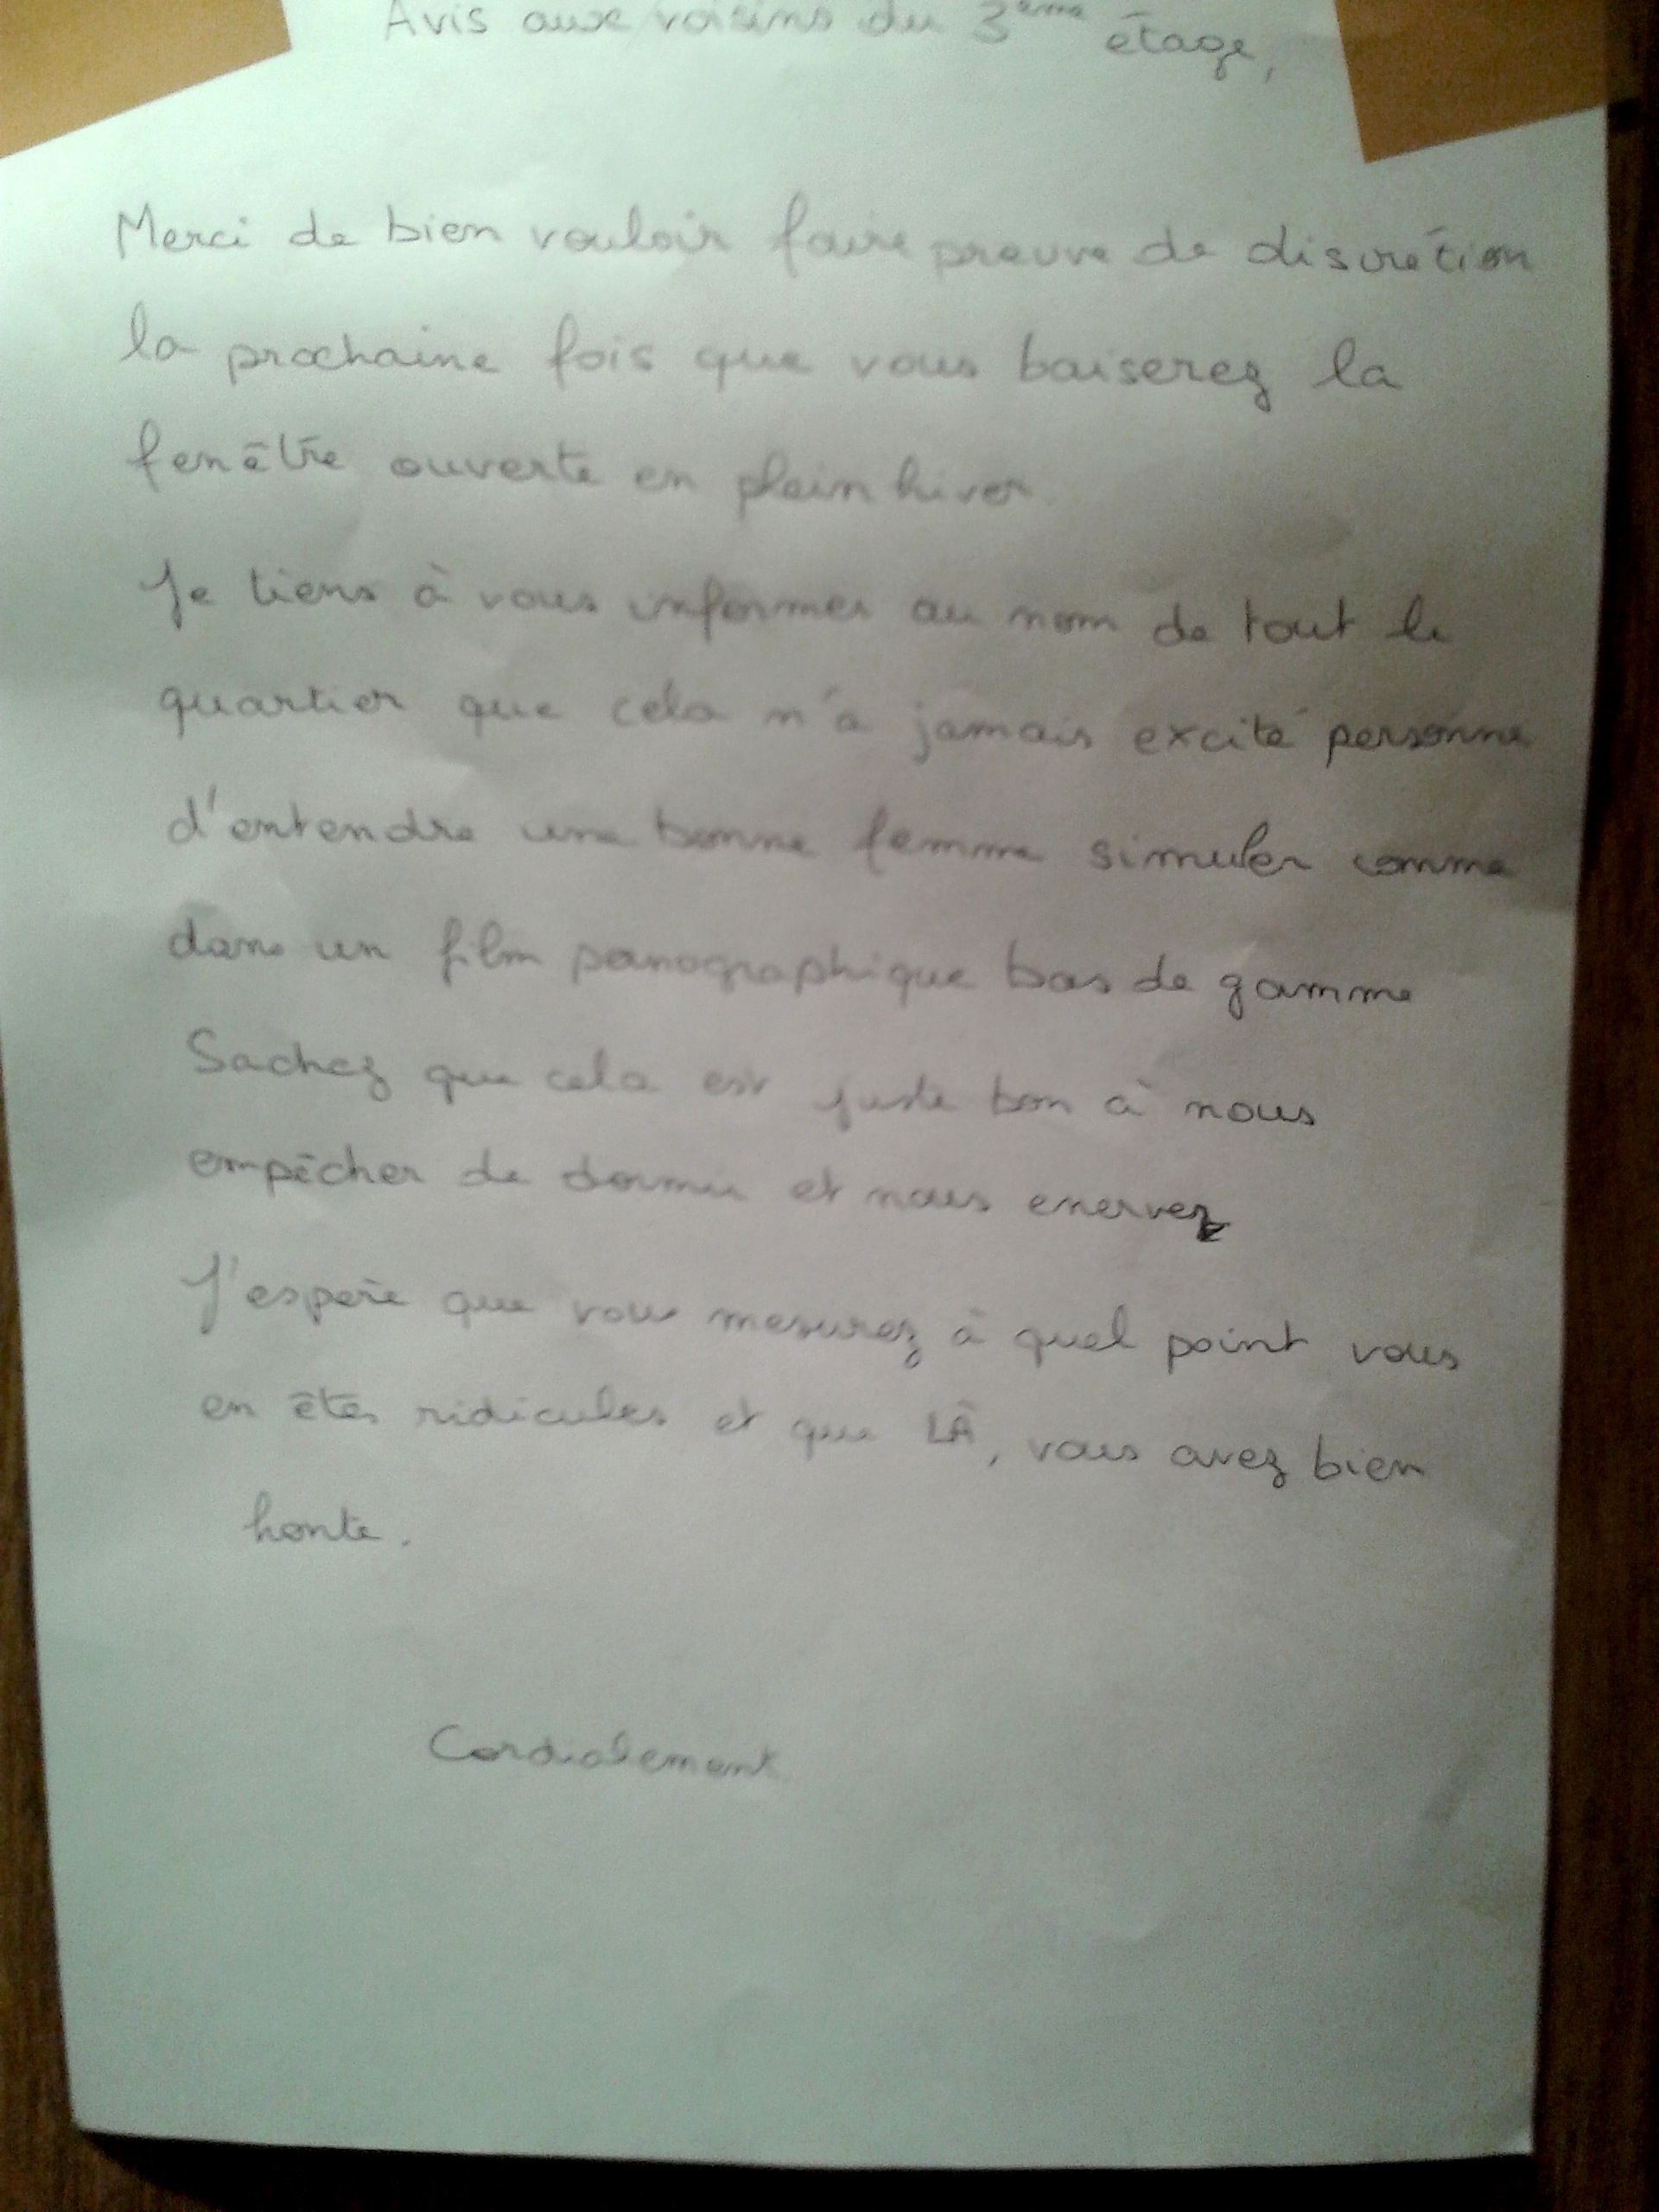 Avis aux voisins du 3ème étage,
Merci de bien vouloir faire preuve de discrétion
la prochaine fois que vous baiserez la
fenêtre ouverte en plein hiver.
Je tiens à vous informer au nom de tout le
quartier que cela n'a jamais excité personne
d'entendre une bonne femme simuler comme
dans un film pornographique bas de gamme
Sachez que cela est juste bon à nous
empêcher de dormir et nous enervez
J'espère que vous mesurez à quel point vous
en êtes ridicules et que LÀ, vous avez bien
honte.
Cordialement